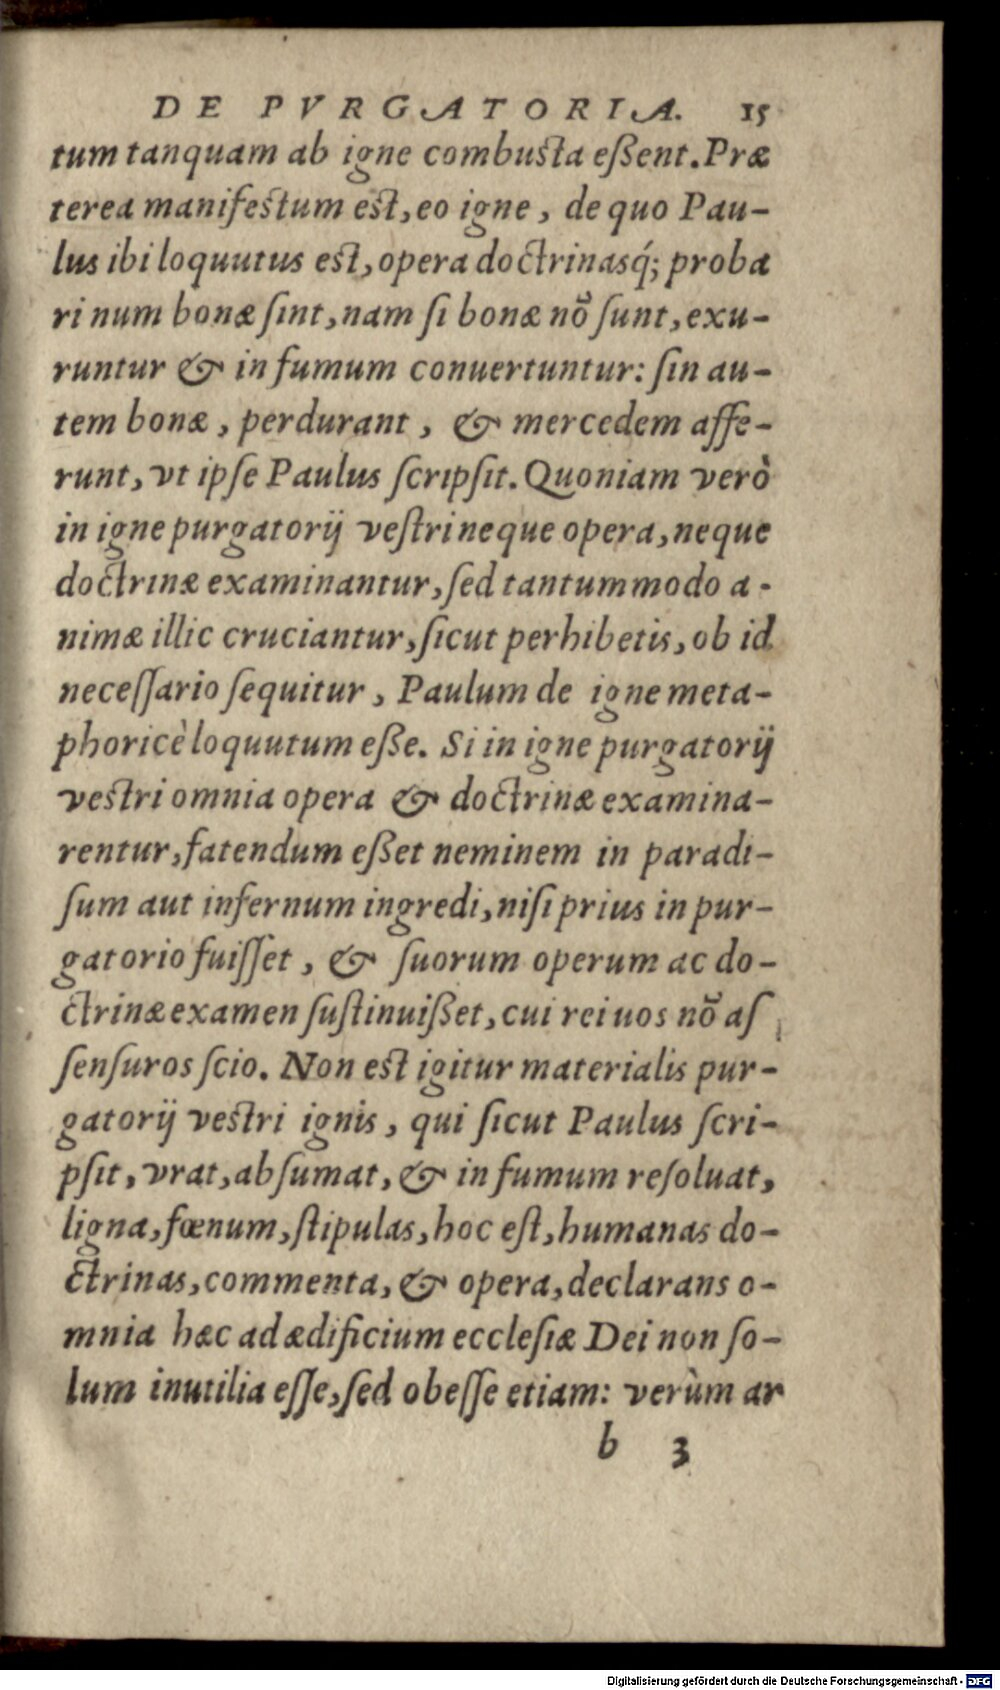 DE PVRGATORIA. 15
tum tanquam ab igne combusta eßent. Præ
terea manifestum est, eo igne, de quo Pau-
lus ibi loquutus est, opera doctrinasq́; proba
ri num bonæ ſint, nam ſi bonæ nõ ſunt, exu-
runtur & in fumum conuertuntur: ſin au-
tem bonæ, perdurant, & mercedem affe-
runt, vt ipſe Paulus ſcripſit. Quoniam verò
in igne purgatorij veſtri neque opera, neque
doctrinæ examinantur, ſed tantummodo a-
nimæ illic cruciantur, ſicut perhibetis, ob id
neceſſario ſequitur, Paulum de igne meta-
phoricè loquutum eße. Si in igne purgatorij
vestri omnia opera & doctrinæ examina-
rentur, fatendum eßet neminem in paradi-
ſum aut infernum ingredi, niſi prius in pur-
gatorio fuiſſet, & ſuorum operum ac do-
ctrinæ examen ſuſtinuißet, cui rei uos nõ aſ
ſenſuros ſcio. Non est igitur materialis pur-
gatorij vestri ignis, qui ſicut Paulus ſcri-
pſit, vrat, abſumat, & in fumum reſoluat,
ligna, fœnum, ſtipulas, hoc eſt, humanas do-
ctrinas, commenta, & opera, declarans o-
mnia hæc ad ædificium eccleſiæ Dei non ſo-
lum inutilia eſſe, ſed obeſſe etiam: verùm ar
b 3
Digitalisierung gefördert durch die Deutsche Forschungsgemeinschaft - DFG